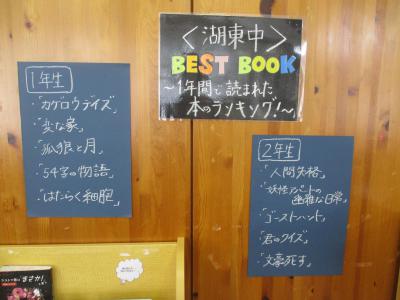 <湖東中>
BEST BOOK
～1年間で読まれた
本のランキング!～
1年生
・「カゲロウデイズ」
・「変な家」
・「孤狼と月」
・「54字の物語」
・「はたらく細胞」
2年生
・「人間失格」
・「妖怪アパートの
幽雅な日常」
・「ゴーストハント」
・「君のクイズ」
・「文豪死す」